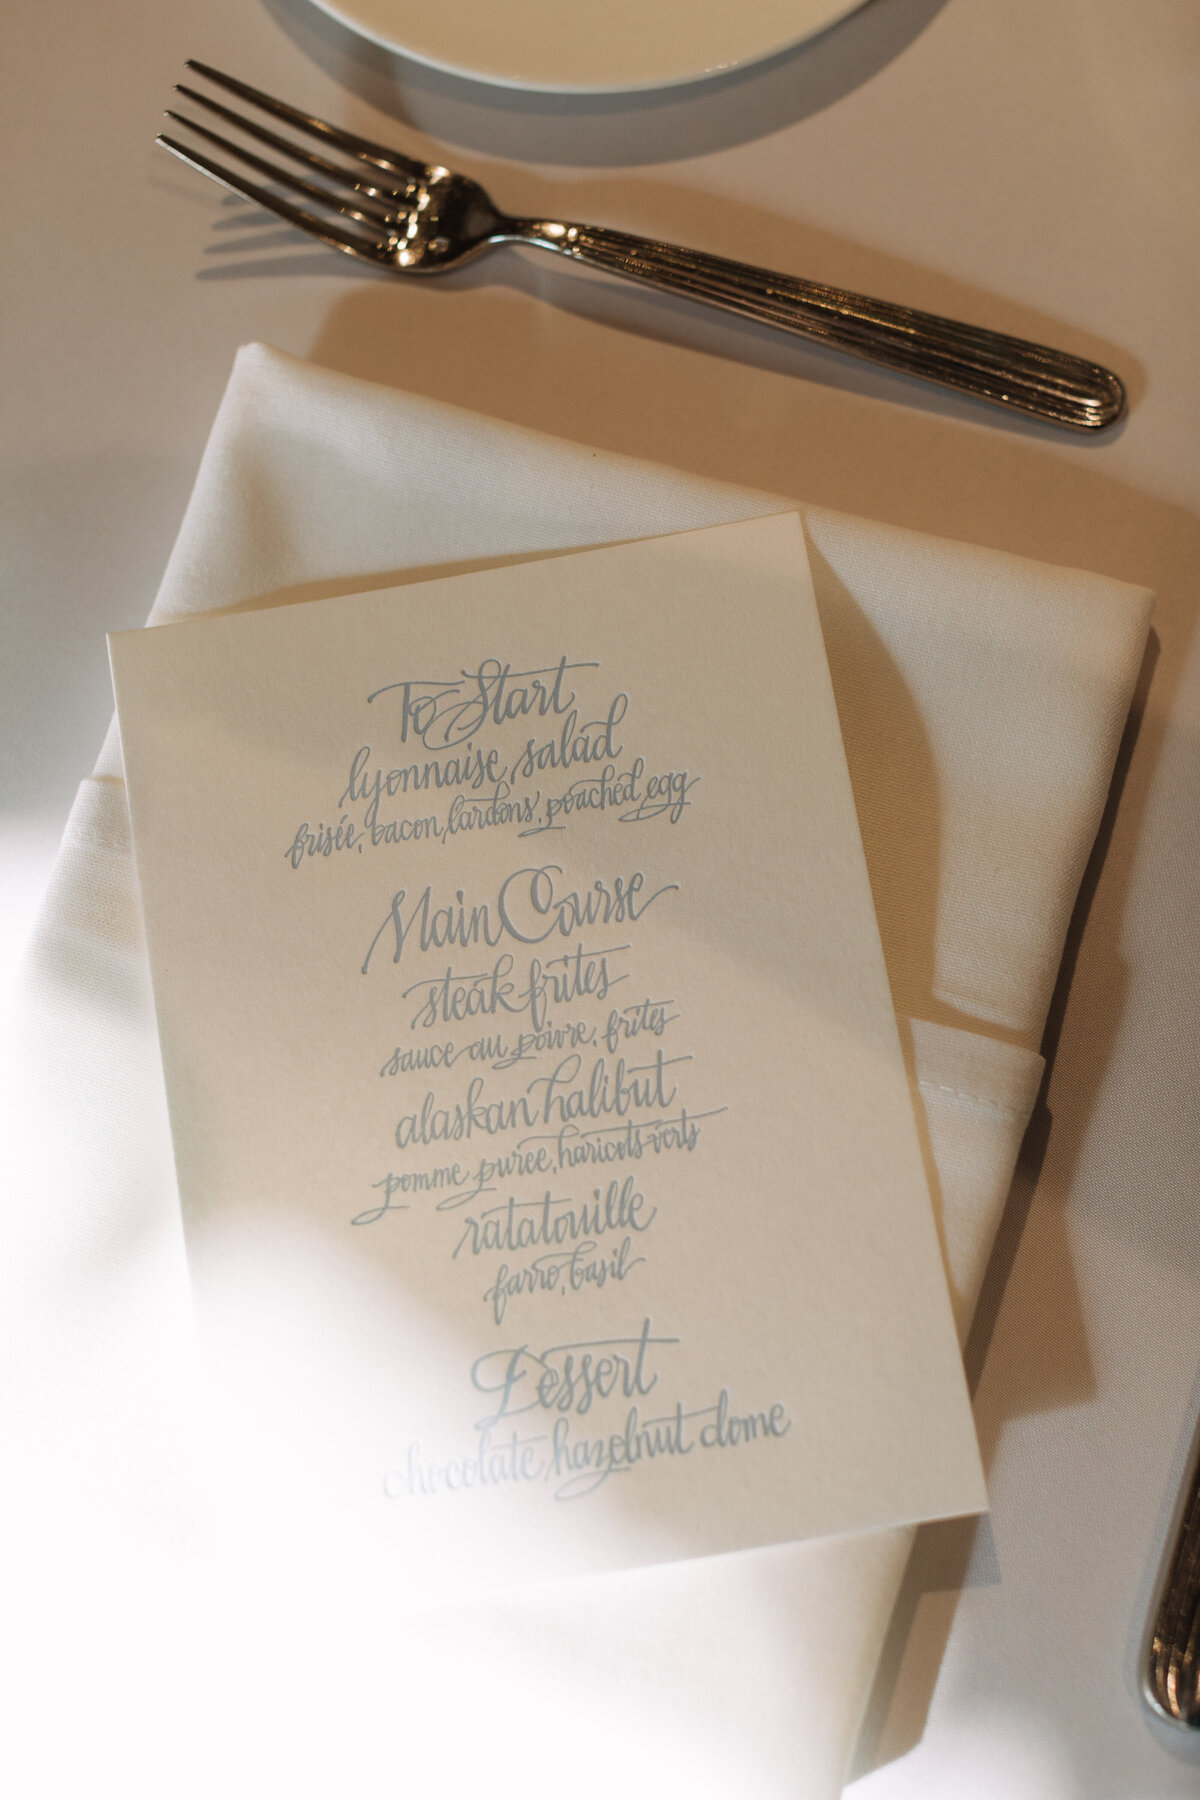 To Start
lyonnaise salad
frisée, bacon, lardons, poached egg
Main Course
steak frites
sauce au poivre, frites
alaskan halibut
pomme puree, haricots verts
ratatouille
farro, basil
Dessert
chocolate hazelnut dome